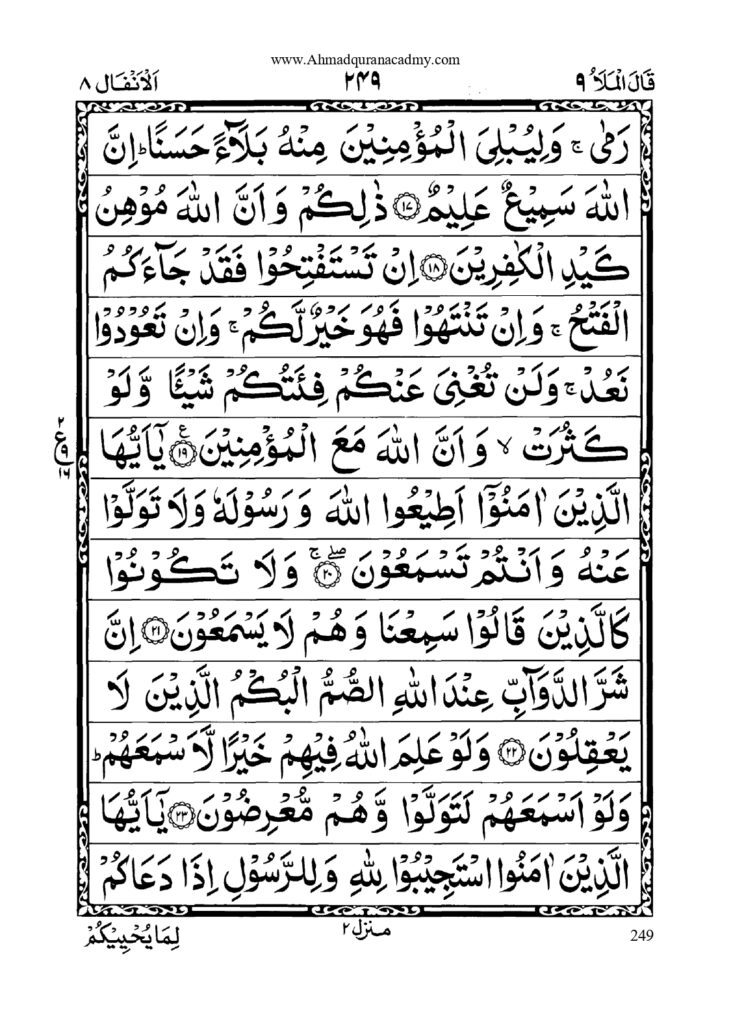 www.Ahmadquranacadmy.com
قَالَ الْمَلَاُ ٩ ٢٤٩ اَلْاَنْفَال ٨
رَمٰى ۚ وَلِيُبْلِىَ الْمُؤْمِنِيْنَ مِنْهُ بَلَآءً حَسَنًا ؕ اِنَّ
اللّٰهَ سَمِيْعٌ عَلِيْمٌ ﴿١٧﴾ ذٰلِكُمْ وَاَنَّ اللّٰهَ مُوْهِنُ
كَيْدِ الْكٰفِرِيْنَ ﴿١٨﴾ اِنْ تَسْتَفْتِحُوْا فَقَدْ جَآءَكُمُ
الْفَتْحُ ۚ وَاِنْ تَنْتَهُوْا فَهُوَ خَيْرٌ لَّكُمْ ۚ وَاِنْ تَعُوْدُوْا
نَعُدْ ۚ وَلَنْ تُغْنِىَ عَنْكُمْ فِئَتُكُمْ شَيْئًا وَّلَوْ
كَثُرَتْ ۙ وَاَنَّ اللّٰهَ مَعَ الْمُؤْمِنِيْنَ ﴿١٩﴾ ع يٰۤاَيُّهَا
٢ ع ٩ ١٦
الَّذِيْنَ اٰمَنُوْۤا اَطِيْعُوا اللّٰهَ وَرَسُوْلَهٗ وَلَا تَوَلَّوْا
عَنْهُ وَاَنْتُمْ تَسْمَعُوْنَ ﴿٢٠﴾ ۖ ۚ وَلَا تَكُوْنُوْا
كَالَّذِيْنَ قَالُوْا سَمِعْنَا وَهُمْ لَا يَسْمَعُوْنَ ﴿٢١﴾ اِنَّ
شَرَّ الدَّوَآبِّ عِنْدَ اللّٰهِ الصُّمُّ الْبُكْمُ الَّذِيْنَ لَا
يَعْقِلُوْنَ ﴿٢٢﴾ وَلَوْ عَلِمَ اللّٰهُ فِيْهِمْ خَيْرًا لَّاَسْمَعَهُمْ ؕ
وَلَوْ اَسْمَعَهُمْ لَتَوَلَّوْا وَّهُمْ مُّعْرِضُوْنَ ﴿٢٣﴾ يٰۤاَيُّهَا
الَّذِيْنَ اٰمَنُوا اسْتَجِيْبُوْا لِلّٰهِ وَلِلرَّسُوْلِ اِذَا دَعَاكُمْ
منزل ٢
لِمَا يُحْيِيْكُمْ
249